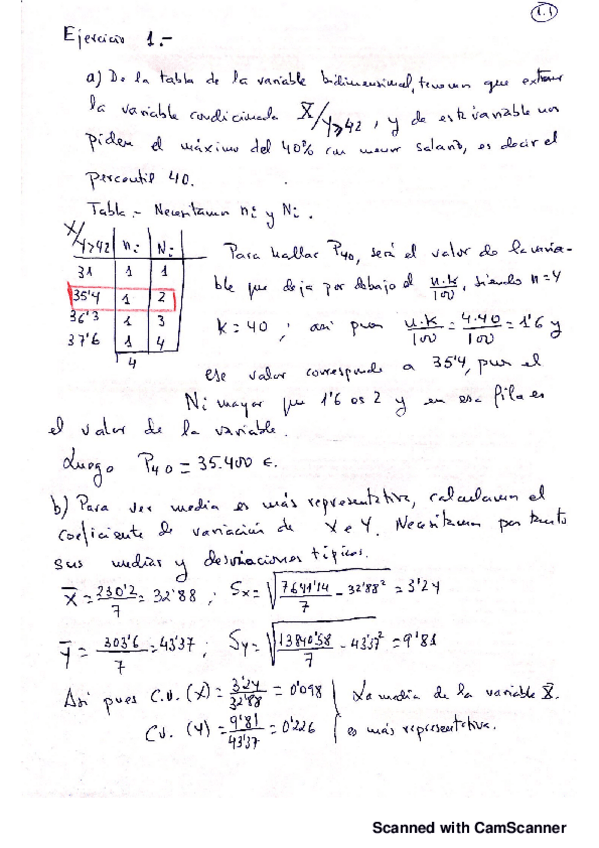 1.1
Ejercicio 1.-
a) De la tabla de la variable bidimensional, tenemos que extraer
la variable condicionada X/Y≥42, y de esta variable nos
piden el máximo del 40% con menor salario, es decir el
percentil 40.
Tabla.- Necesitamos ni y Ni.
X/Y≥42 | ni | Ni
31 | 1 | 1
35'4 | 1 | 2
36'3 | 1 | 3
37'6 | 1 | 4
4
Para hallar P40, será el valor de la varia-
ble que deja por debajo el n·k/100, siendo n=4
k=40; así pues n·k/100 = 4·40/100 = 1'6 y
ese valor corresponde a 35'4, pues el
Ni mayor que 1'6 es 2 y en esa fila es
el valor de la variable.
Luego P40 = 35.400 €.
b) Para ver media es más representativa, calculamos el
coeficiente de variación de X e Y. Necesitamos por tanto
sus medias y desviaciones típicas.
X̄ = 230'2/7 = 32'88 ; Sx = √(7641'14/7 - 32'88²) = 3'24
Ȳ = 303'6/7 = 43'37 ; Sy = √(13840'58/7 - 43'37²) = 9'81
Así pues C.V. (X) = 3'24/32'88 = 0'098 | La media de la variable X.
C.V. (Y) = 9'81/43'37 = 0'226 | es más representativa.
Scanned with CamScanner